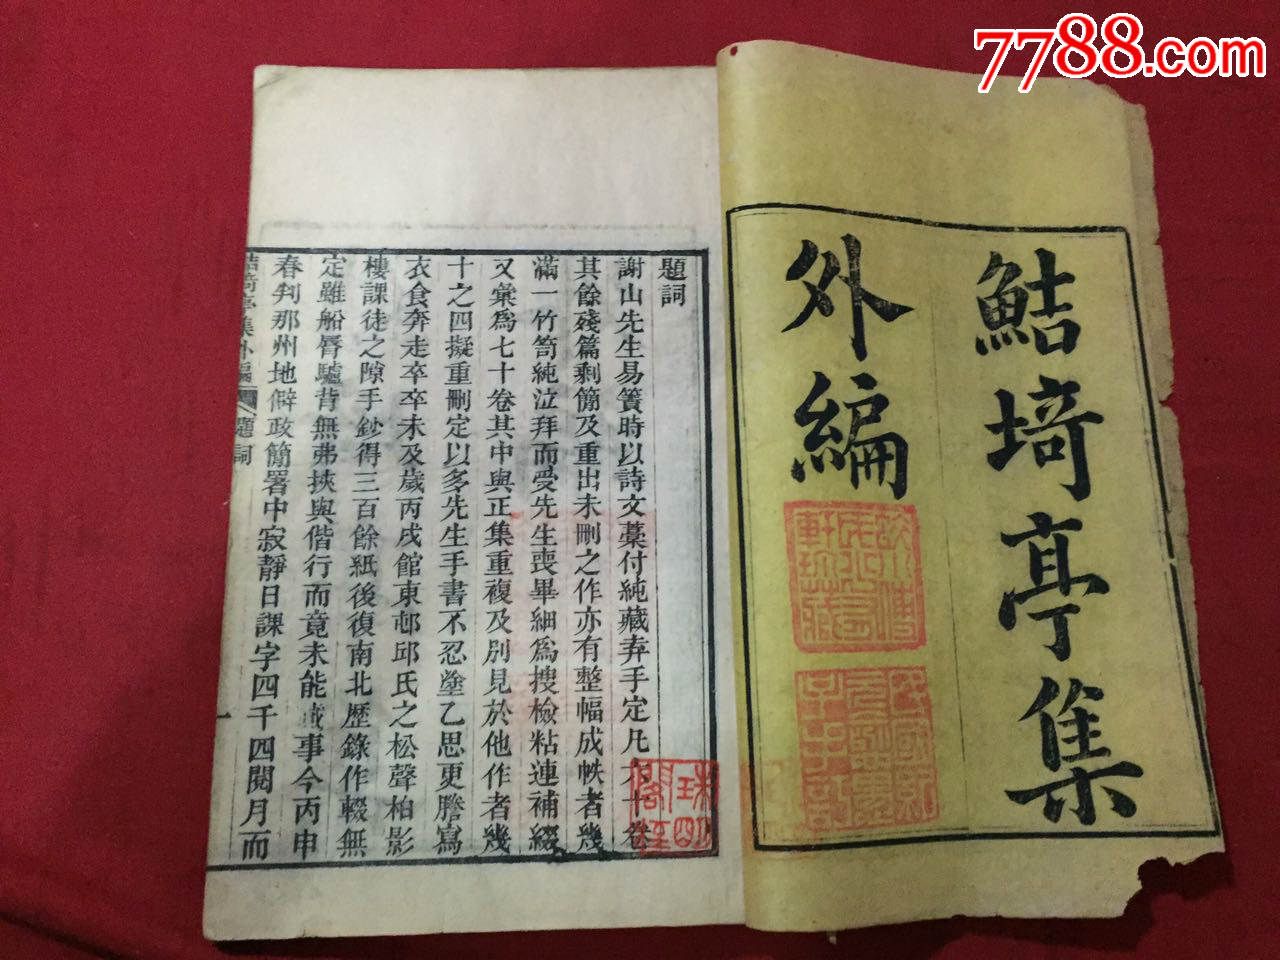 7788.com
鮚埼亭集
外編
題詞
謝山先生易簀時以詩文藁付純藏弆手定凡六十卷
其餘殘篇剩簡及重出未刪之作亦有整幅成帙者幾
滿一竹笥純泣拜而受先生喪畢細爲搜檢粘連補綴
又彙爲七十卷其中與正集重複及別見於他作者幾
十之四擬重刪定以多先生手書不忍塗乙思更謄寫
衣食奔走卒卒未及歲丙戌館東邨邱氏之松聲柏影
樓課徒之隙手鈔得三百餘紙後復南北歷錄作輟無
定雖船脣驢背無弗挾與偕行而竟未能蕆事今丙申
春判那州地僻政簡署中寂靜日課字四千四閱月而
鮚埼亭集外編 題詞 一